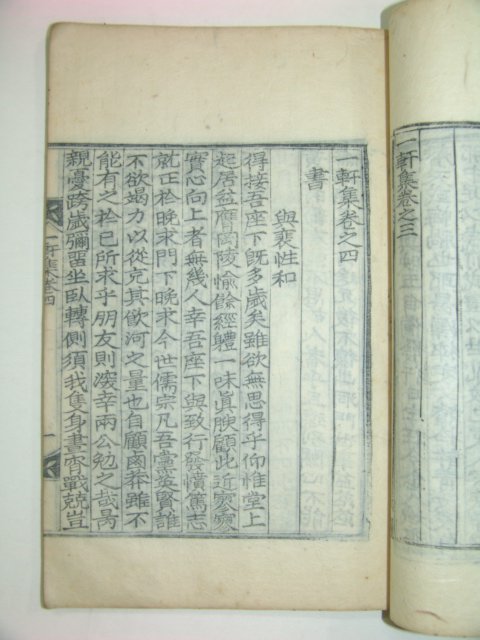 一軒集卷之三
一軒集卷之四
書
與裵性和
得接吾座下旣多歲矣雖欲無思得乎仰惟堂上
起居益膺岡陵愉餘經體一味眞腴顧此近寥寥
實心向上者無幾人幸吾座下與致行發憤篤志
就正於晩求門下晩求今世儒宗凡吾黨益賢誰
不欲竭力以從充其飮河之量也自顧鹵莽雖不
能有之於己所求乎朋友則深幸兩公勉之哉禼
親憂跨歲彌留坐臥轉側須我隻身晝宵戰兢豈
軒集卷四
一